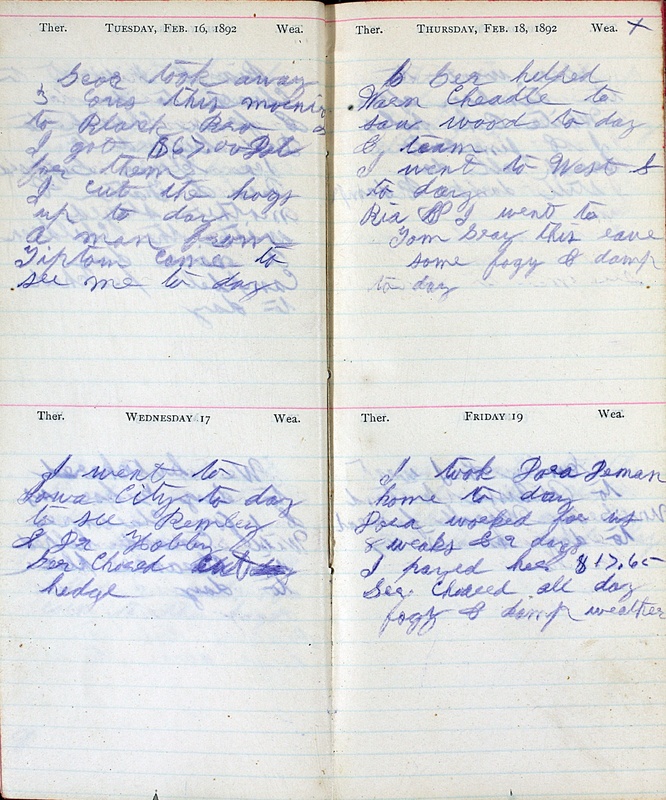 Ther. TUESDAY, FEB. 16, 1892 Wea.
took away
3 this morning
to
I got $67.00
for them
I cut the hogs
up to day
a man from
Tipton came to
see me to day
Ther. WEDNESDAY 17 Wea.
I went to
Iowa City to day
to see Remley
& Dr Hobby
Ger Chored
hedge
Ther. THURSDAY, FEB. 18, 1892 Wea. X
Ger helped
Cheadle to
saw wood to day
& team
I went to West
to day
Ria & I went to
Tom this eave
some fogy & damp
to day
Ther. FRIDAY 19 Wea.
I took Dora Deman
home to day
Dora worked for us
8 weaks & 2 days
I payed her $17.65
Ger Chored all day
fogy & damp weather